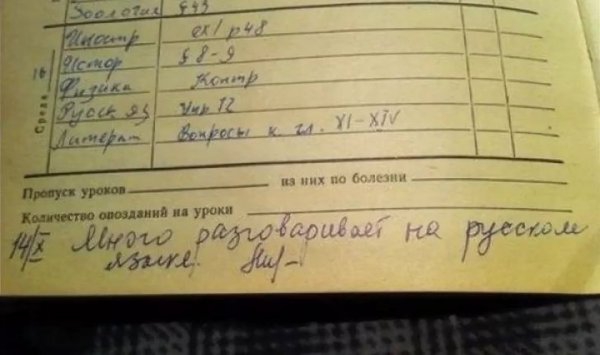 Зоология §43
Иностр ех/ р48
Истор § 8-9
16
Среда
Физика Контр
Русск яз Упр 12
Литерат Вопросы к гл. XI-XIV
Пропуск уроков из них по болезни
Количество опозданий на уроки
14/X Много разговаривает на русском
языке.